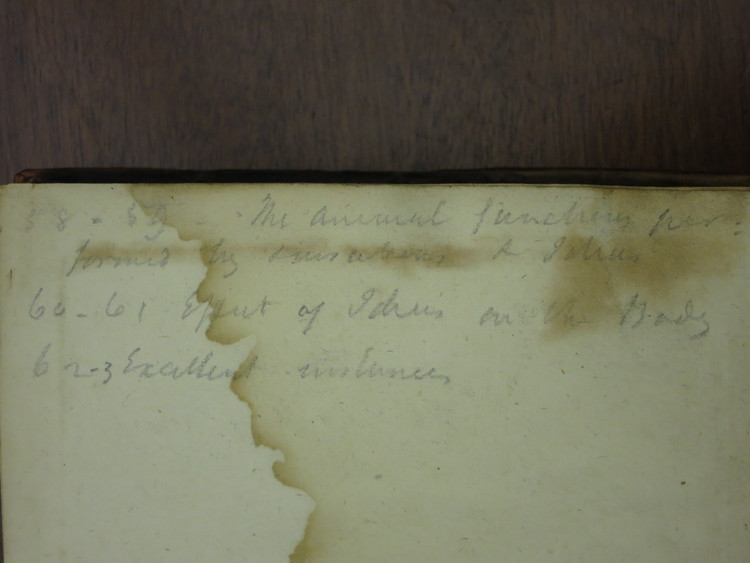 58-59 - The animal functions per:
formed by sensations & Ideas
60-61 Effect of Ideas on the Body
62-3 Excellent instances